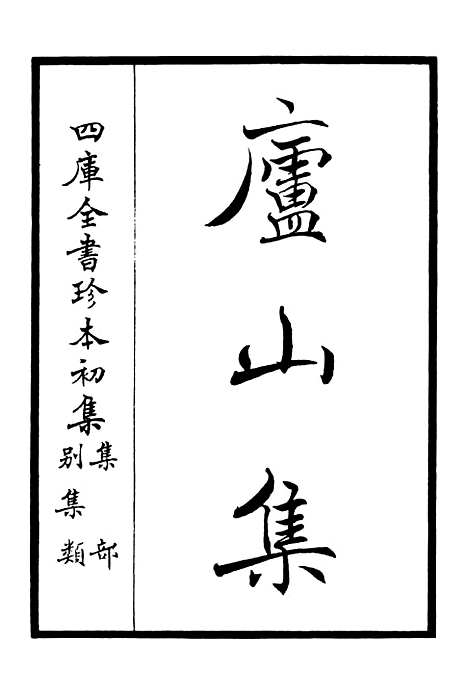 廬山集
四庫全書珍本初集
集部
別集類